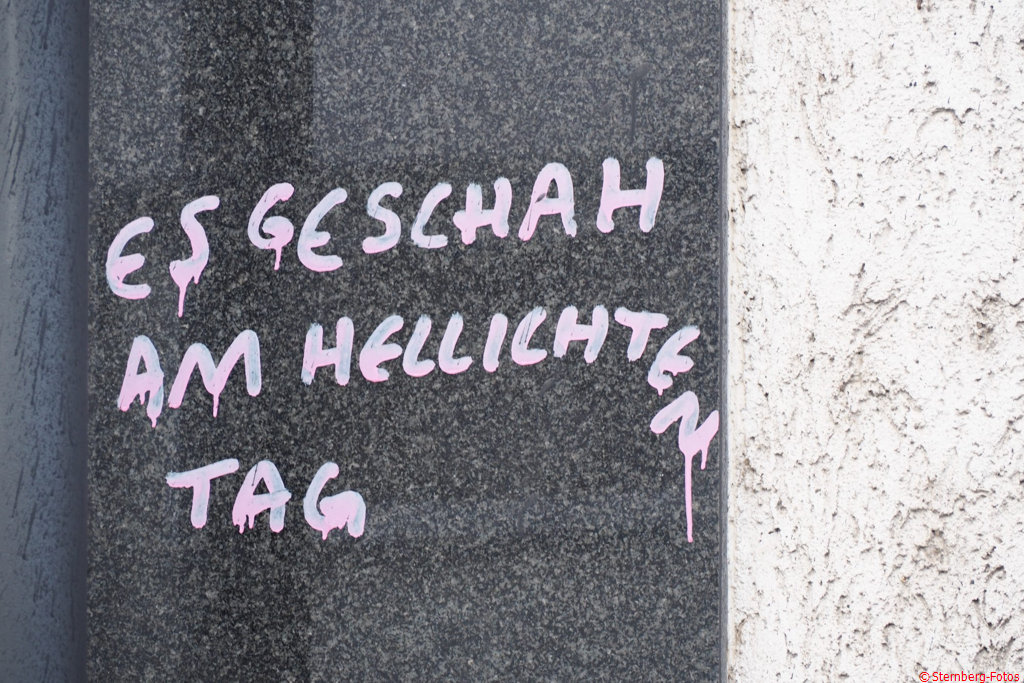 ES GESCHAH
AM HELLICHTEN
TAG
© Sternberg-Fotos